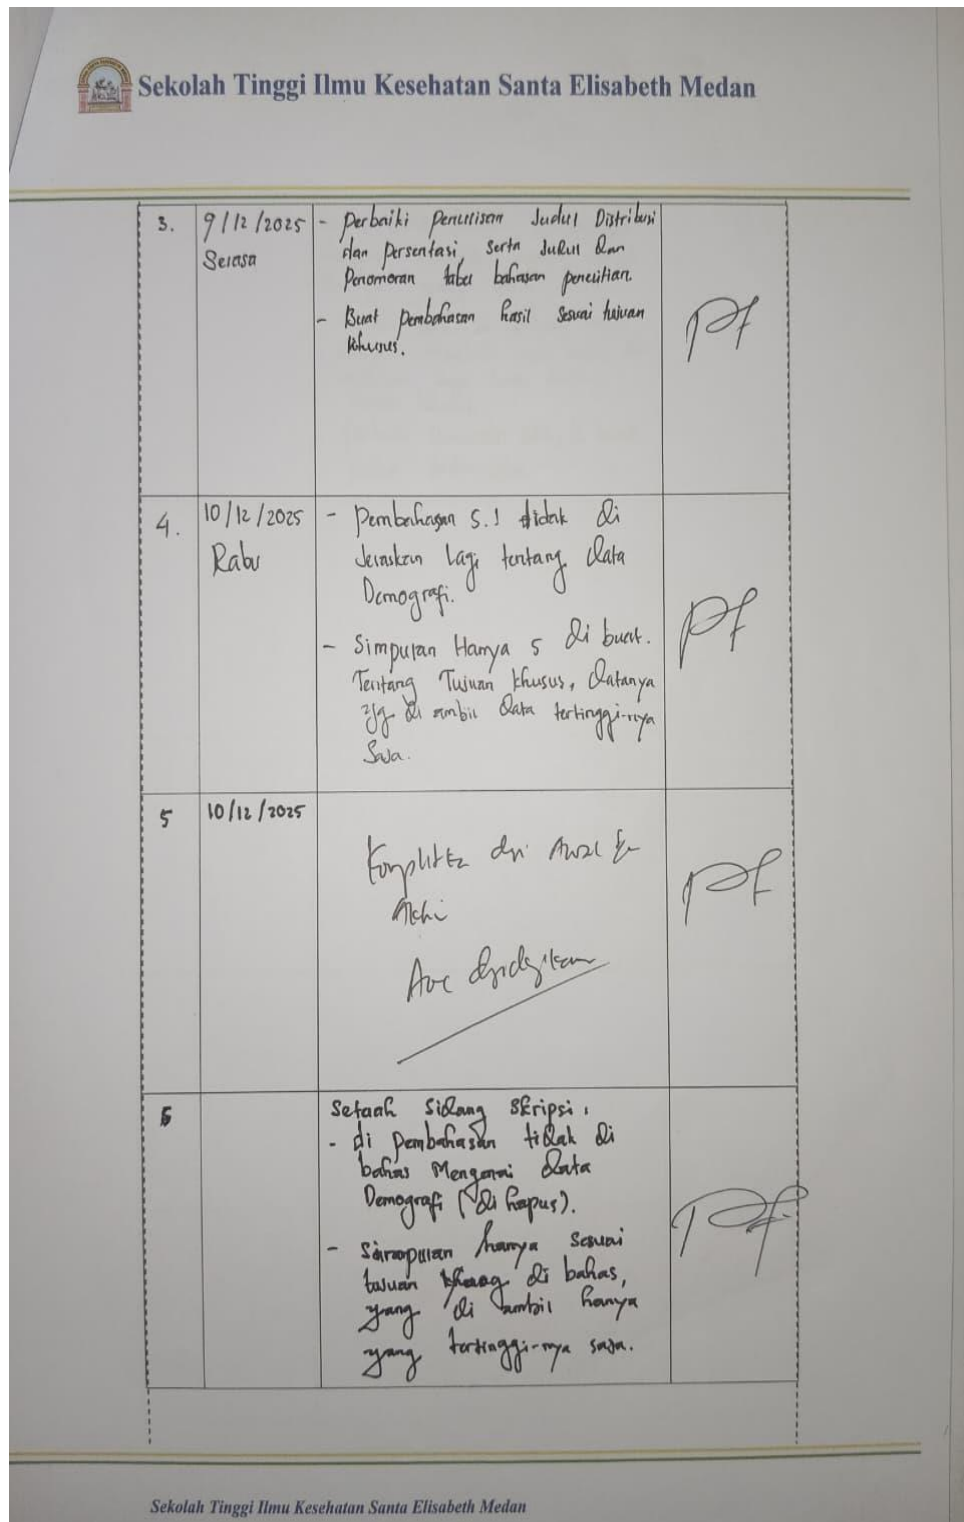 Sekolah Tinggi Ilmu Kesehatan Santa Elisabeth Medan
3.
9/12/2025
Selasa
- Perbaiki Penulisan Judul Distribusi
dan Persentasi, serta Judul dan
Penomoran tabel bahasan penelitian.
- Buat pembahasan hasil sesuai tujuan
khusus.
4.
10/12/2025
Rabu
- Pembahasan 5.1 tidak di
Jelaskan Lagi tentang data
Demografi.
- Simpulan Hanya 5 di buat.
Tentang Tujuan khusus, datanya
yg di ambil data tertinggi-nya
Saja.
5
10/12/2025
dri Awal
6
Setelah Sidang Skripsi :
- di pembahasan tidak di
bahas Mengenai data
Demografi (di hapus).
- Simpulan hanya sesuai
tujuan di bahas,
yang di ambil hanya
yang tertinggi-nya saja.
Sekolah Tinggi Ilmu Kesehatan Santa Elisabeth Medan